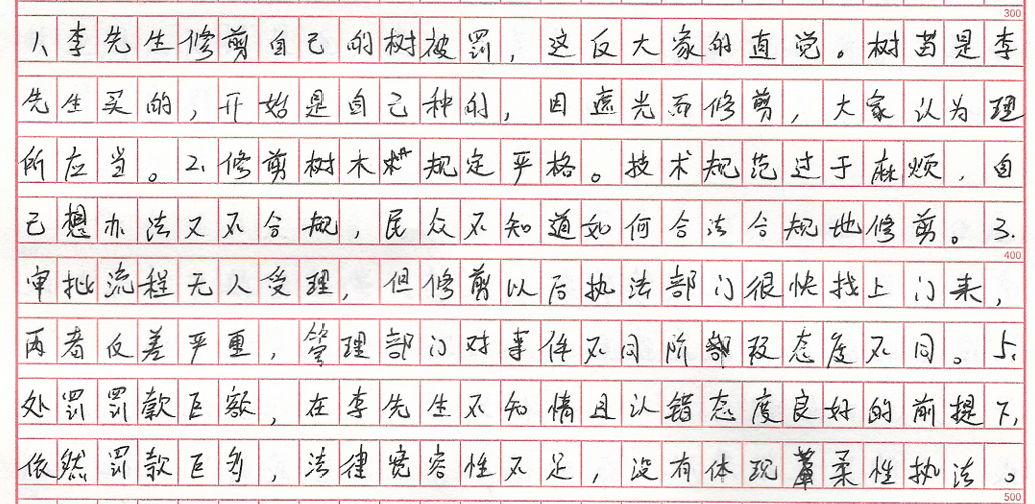 300
1、李先生修剪自己的树被罚，这反大家的直觉。树苗是李
先生买的，开始是自己种的，因遮光而修剪，大家认为理
所应当。2、修剪树木 规定严格。技术规范过于麻烦，自
己想办法又不合规，民众不知道如何合法合规地修剪。3、
400
审批流程无人受理，但修剪以后执法部门很快找上门来，
两者反差严重，管理部门对事件不同阶段态度不同。5、
处罚罚款巨额，在李先生不知情且认错态度良好的前提下，
依然罚款巨多，法律宽容性不足，没有体现柔性执法。
500